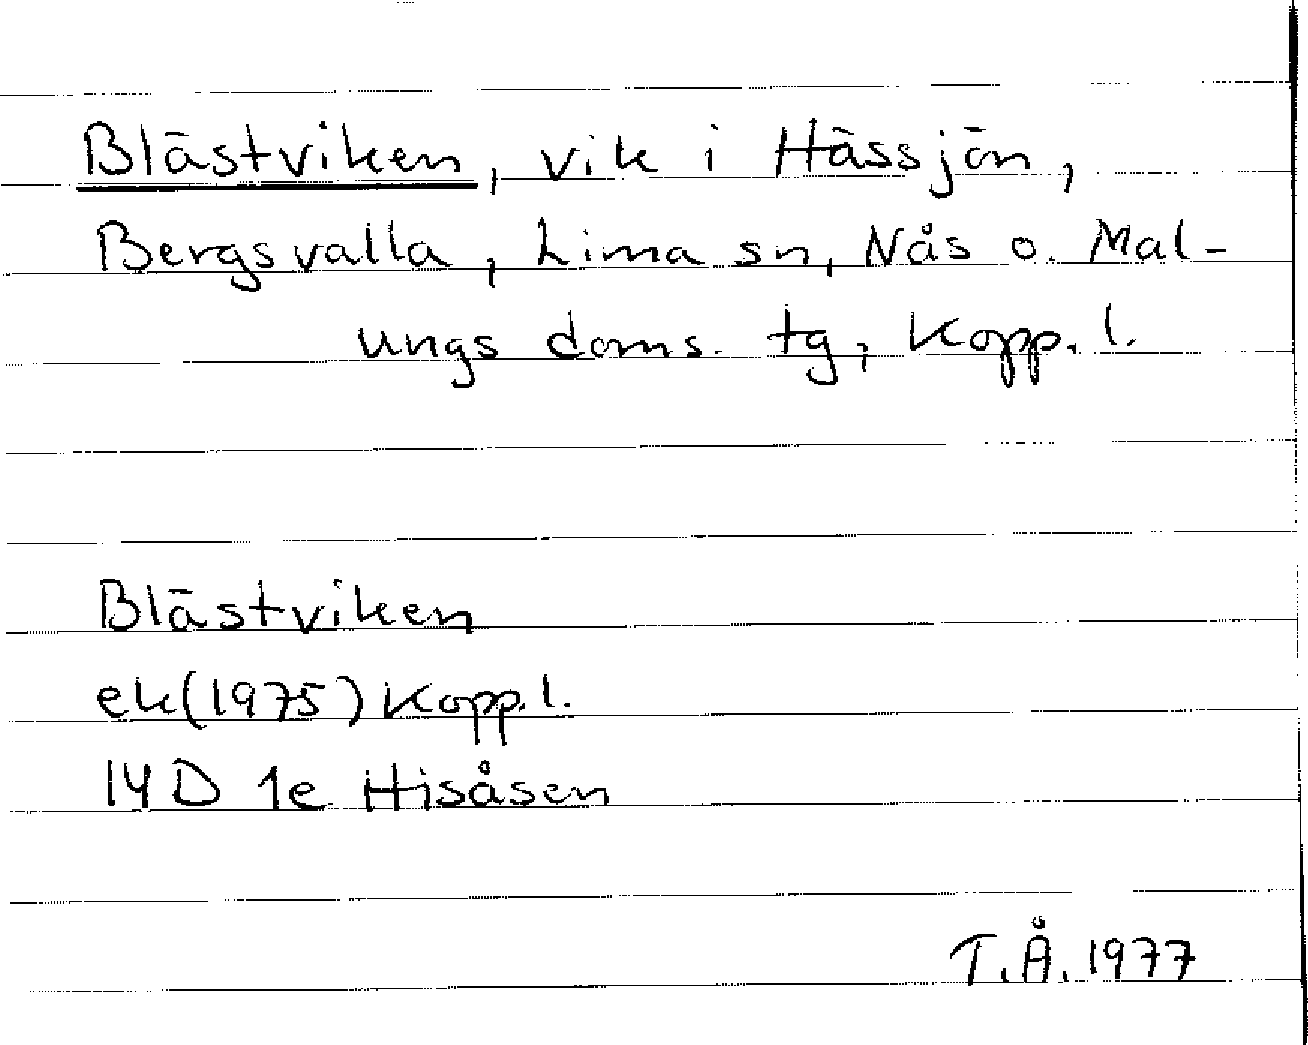 Blästviken, vik i Hässjön,
Bergsvalla, Lima sn, Nås o. Mal-
ungs doms. tg, Kopp. l.
Blästviken
ek(1975) Kopp. l.
14D 1e Hisåsen
T.Å. 1977